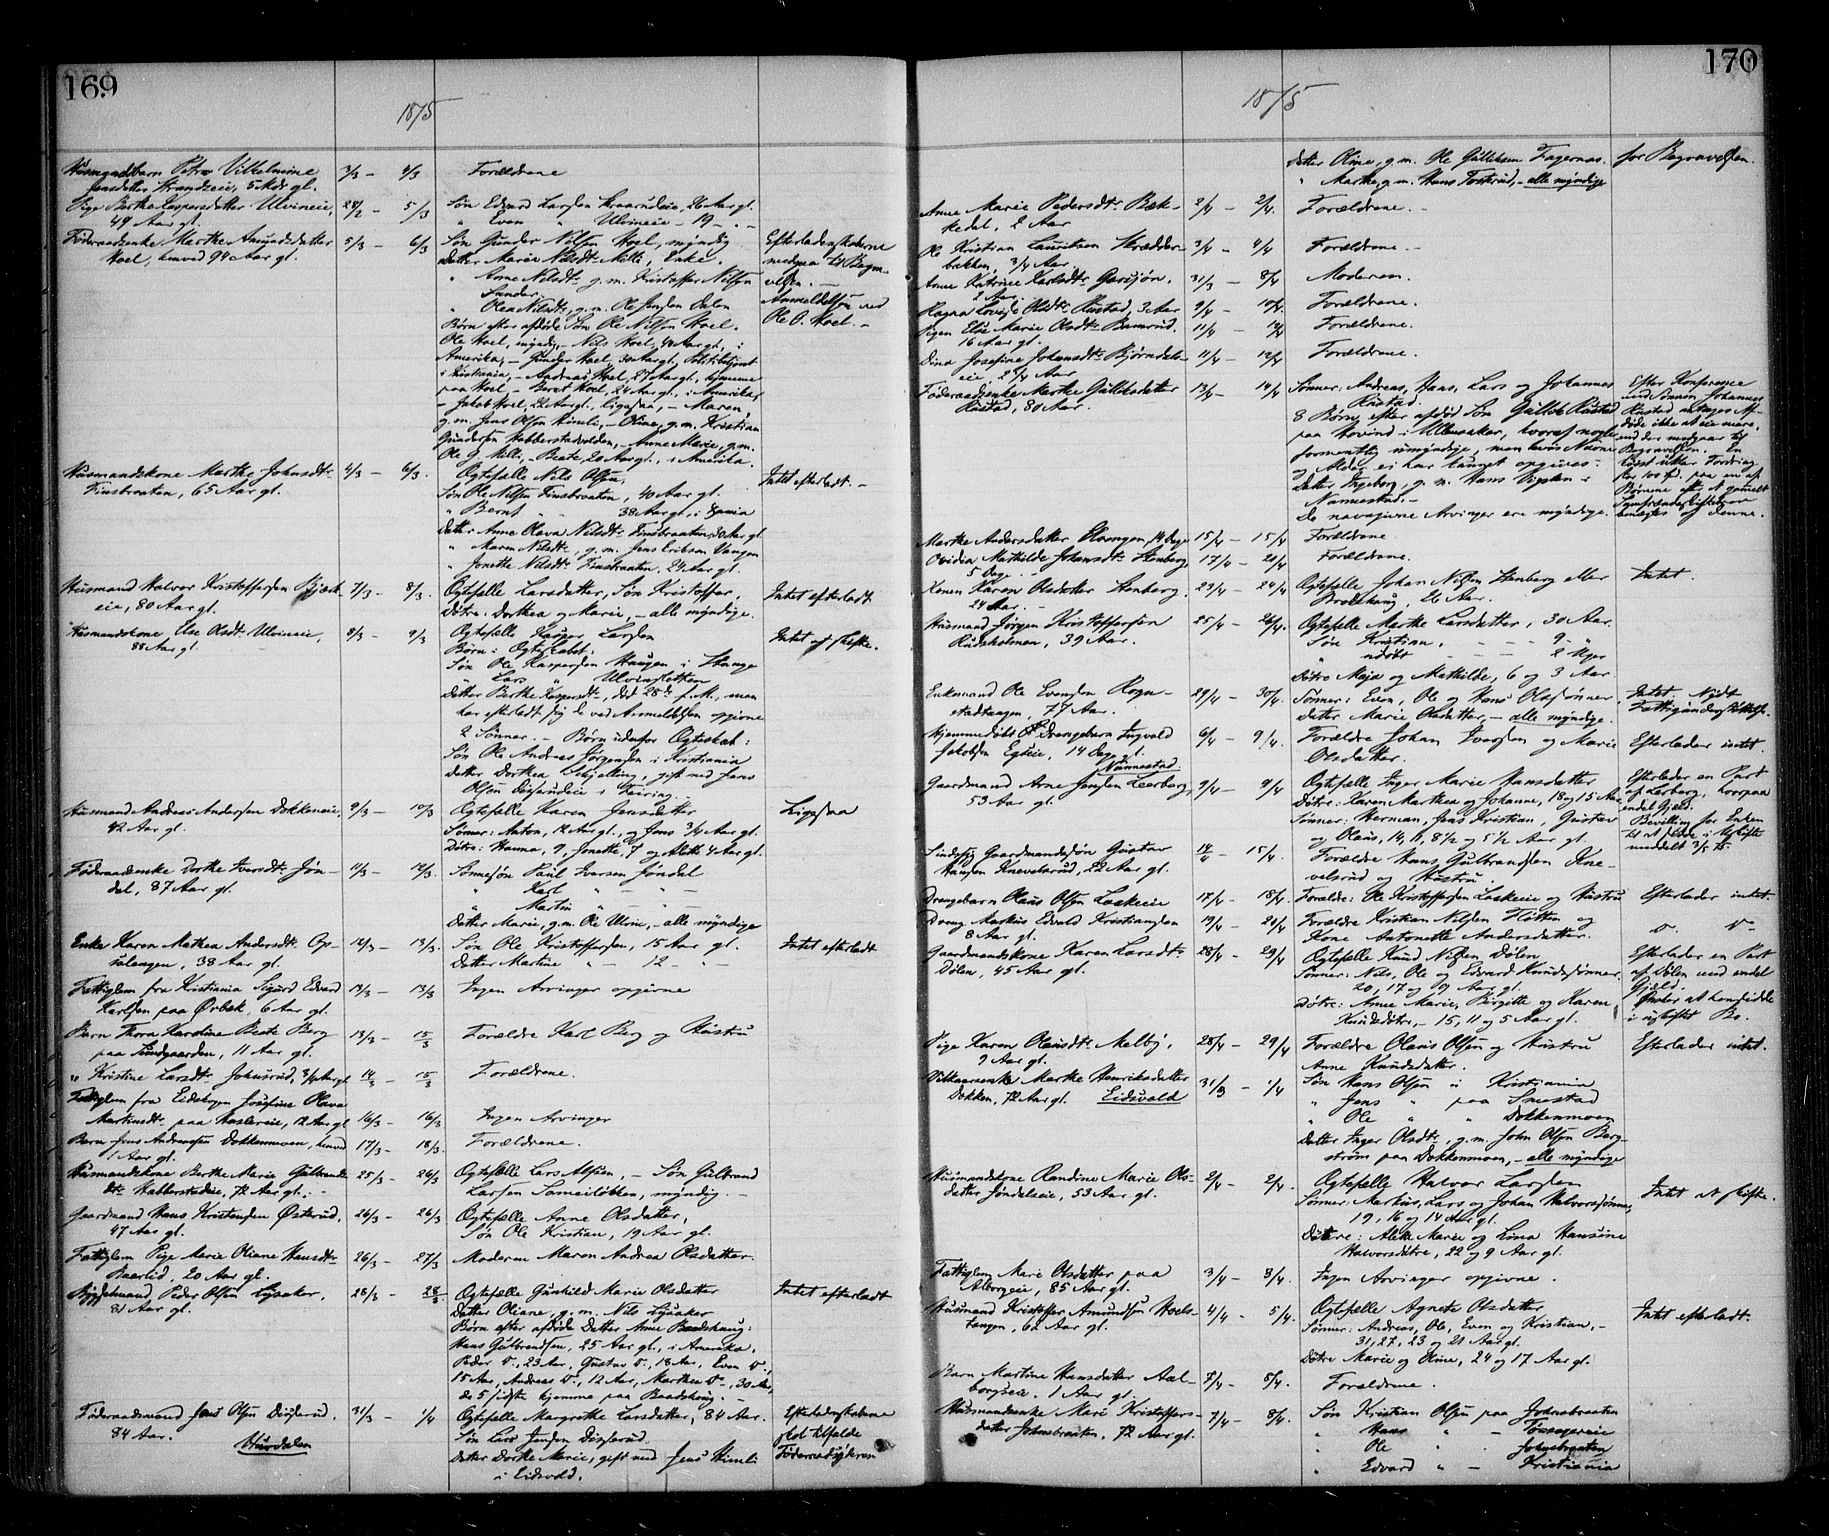 169
1875
Husmandsbarn Petra Vilhelmine 3/3 – 4/3 Forældrene
Jensdatter Strandseie, 5 Mdr gl.
Pige Berthe Kaspersdatter Ulvineie, 28/2 – 5/3 Søn Edvard Larsen 26 Aar gl.
49 Aar gl. " Even " Ulvineie – 19 – " –
Føderaadsenke Marthe Amundsdatter 5/3 – 6/3 Søn Gunder Nilsen Hoel, myndig Efterladenskaberne
Hoel, henved 94 Aar gl. Datter Marie Nilsdtr Mille, Enke. medgaa til Begra-
" Anne Nilsdtr, g.m. Kristoffer Nilsen velsen. –
Sander. Anmeldelsen ved
" Olea Nilsdtr, g.m. Ole Jensen Dalen Ole O. Hoel. –
Børn efter afdøde Søn Ole Nilsen Hoel.
Ole Hoel, myndig, – Nils Hoel, 40 Aar gl., i
Amerika, – Gunder Hoel, 30 Aar gl., Politibetjent
i Kristiania, – Andreas Hoel, 27 Aar gl., hjemme
paa Hoel, – Beret Hoel, 24 Aar gl., i Amerika,
– Jakob Hoel, 22 Aar gl., ligesaa, – Maren,
g.m. Jens Olsen Himli, – Oline, g.m. Kristian
Gundersen Habberstadvolden, – Anne Marie, g.m.
Ole G. Mille, – Beate, 20 Aar gl., i Amerika.
Husmandskone Marthe Johnsdtr 4/3 – 6/3. Ægtefælle Nils Olsen, Intet efterladt. –
Finsbraaten, 65 Aar gl. Søn Ole Nilsen Finsbraaten, 40 Aar gl.
" Bernt " " 38 Aar gl.,
Datter Anne Olava Nilsdtr Finsbraaten, 30 Aar gl
" Maren Nilsdtr, g.m. Jens Eriksen Vangen
" Jonette Nilsdtr Finsbraaten, 24 Aar gl.
Husmand Halvor Kristoffersen 7/3 – 8/3. Ægtefælle Larsdatter, Søn Kristoffer, Intet efterladt
eie, 80 Aar gl. Døtre: Dorthea og Marie, – alle myndige.
Husmandskone Else Olsdtr Ulvineie, 8/3 – 9/3 Ægtefælle Kasper Larsen Intet at skifte.
88 Aar gl. Børn i Ægteskabet:
Søn Ole Kaspersen Haugen i Stange
" Lars " Ulvinsletten
Datter Berthe Kaspersdtr, død 28de f.M., men
har efterladt sig de ved Anmeldelsen opgivne
2 Sønner. – Børn udenfor Ægteskab:
Søn Ole Andreas Jørgensen i Kristiania
Datter Dorthea Schjelling, gift med Jens
Olsen i Feiring.
Husmand Andreas Andersen Dokkeneie, 9/3 – 10/3 Ægtefælle Karen Jensdatter Ligesaa
42 Aar gl. Sønner: Anton, 12 Aar gl., og Jens 3/4 Aar gl.
Døtre: Hanna, 9, Jonette, 7 og Alette 4 Aar gl.
Føderaadsenke Dorthe Iversdtr Jøn- 11/3 – 12/3. Sønnesøn Paul Iversen Jøndal
dal, 87 Aar gl. " Karl " – " –
" Martin " – " –
Datter Marie, g.m. Ole Ulvin, – alle myndige
Enke Karen Mathea Andersdtr Op- 12/3 – 13/3. Søn Ole Kristoffersen, 15 Aar gl. Intet efterladt
salengen, 38 Aar gl. Datter Martine " – 12 – " –
Fattiglem fra Kristiania Sigurd Edvard 13/3 – 13/3 Ingen Arvinger opgivne
Karlsen paa Ørbæk, 6 Aar gl.
Barn Thora Karoline Beate Berg 13/3 – 15/3 Forældre Karl Berg og Hustru
paa Sundgaarden, 11 Aar gl.
" Kristine Larsdtr Johnsrud, 3/4 Aar gl 14/3 – 15/3 Forældrene.
Fattiglem fra Eidskogen Josefine Olava
Martinsdtr paa Haslereie, 12 Aar gl 16/3 – 16/3 Ingen Arvinger
Barn Jens Andreasen Dokkenmoen, henved 17/3 – 18/3. Forældrene.
1 Aar gl.
Husmandskone Berthe Marie Gulbrands- 25/3 – 26/3 Ægtefælle Lars Alfsen, – Søn Gulbrand
dtr Habberstadeie, 72 Aar gl. – Larsen Sameiløkken, myndig. –
Gaardmand Hans Kristensen Østerud, 26/3 – 26/3 Ægtefælle Anne Olsdatter,
47 Aar gl. Søn Ole Kristian, 19 Aar gl.
Fattiglem Pige Marie Oliane Hansdtr 26/3 – 27/3 Moderen Maren Andrea Olsdatter.
Baarlid, 20 Aar gl.
Byggselmand, Peder Olsen Lysaker, 28/3 – 28/3. Ægtefælle Gunhild Marie Olsdatter Intet efterladt
81 Aar gl. Datter Oliane, g.m. Nils Lysaker
Børn efter afdøde Datter Anne Baadshaug:
Hans Gulbrandsen, 25 Aar gl., i Amerika,
Peder Do, 23 Aar, Gustav Do, 18 Aar, Even Do
15 Aar, Andreas Do, 12 Aar, Marthea Do, 30 Aar,
de 5 sidste hjemme paa Baadshaug. –
Føderaadsmand Jens Olsen Disserud, 31/3 – 1/4 Ægtefælle Margrethe Larsdatter, 84 Aar. Efterladenskaberne
84 Aar. Søn Lars Jensen Disserud. skal tilfalde
Hurdalen Datter Dorthe Marie, gift med Jens Himli Føderaadsyderen
i Eidsvold.
170
1875
Datter Oline, g.m. Ole Gulliksen Fagernæs. for Begravelsen.
" Marthe, g.m. Hans Tosterud, – alle myndige
Anne Marie Pedersdtr Bæk- 2/4 – 2/4. Forældrene. –
kedal, 2 Aar
Ole Kristian Lauritsen Skrædder- 3/4 – 4/4 Forældrene. –
bækken, 3/4 Aar.
Anne Katrine Karlsdtr Garsjøn, 31/3 – 8/4 Moderen. –
2 Aar.
Ragna Lovise Olsdtr Rustad, 3 Aar 9/4 – 10/4 Forældrene.
Pigen Else Marie Olsdtr Bamrud, 11/4 – 12/4 Forældrene.
16 Aar gl.
Dina Josefine Johansdtr Bjørndals- 11/4 – 12/4 Forældrene.
eie, 2 1/4 Aar
Føderaadsenke Marthe Gulliksdatter 13/4 – 14/4 Sønner: Andreas, Hans, Lars og Johannes Efter Konference
Rustad, 80 Aar. Rustad. med Sønnen Johannes
8 Børn efter afdød Søn Gullik Rustad Rustad antages Af-
paa Hovind i Ullensaker, hvoraf nogle døde ikke at eie mere,
formentlig umyndige, men hvis Navne end der medgaar til
og Alder ei har kunnet opgives. Begravelsen. En
Datter Ingeborg, g.m. Hans Vigsten i
Nannestad. –
De navngivne Arvinger ere myndige.
Marthe Andersdatter Elvangen, 14 Dage 15/4 – 15/4 Forældrene
Ovidia Mathilde Johansdtr Stenberg 17/4 – 21/4 Forældrene.
5 Dage. –
Konen Karen Olsdatter Stenberg, 23/4 – 24/4 Ægtefælle Johan Nilsen Stenberg eller Intet.
24 Aar. – Brodshaug, 26 Aar.
Husmand Jørgen Kristoffersen 25/4 – 26/4. Ægtefælle Marthe Larsdatter, 30 Aar.
Rudsholmen, 39 Aar. Søn Kristian, – – 9 – "
" udøbt – – – 2 Uger
Døtre Maja og Mathilde, 6 og 3 Aar
Enkemand Ole Evensen Rogn- 29/4 – 30/4. Sønner: Even, Ole og Hans Olssønner, Intet. Nydt
stadtangen, 77 Aar. Datter Marie Olsdatter, – alle myndige. Fattigunderstøttelse.
Hjemmedøbt Drengebarn Ingvald 6/4 – 9/4. Forældre Johan Iversen og Marie Efterlader intet.
Jakobsen Egseie, 14 Dage gl. Olsdatter.
Nannestad
Gaardmand Arne Jensen Leerberg, 9/4 – 9/4 Ægtefælle Inger Marie Hansdatter Efterlader en Part
53 Aar gl. Døtre: Karen Marthea og Johanne, 18 og 15 Aar, af Lerberg, hvorpaa
Sønner: Herman, Jens Kristian, Gustav endel Gjeld.
og Olaus, 14, 11, 8 1/2 og 5 1/2 Aar gl Bevilling for Enken
til at sidde i Uskifte
meddelt
Sindssyg Gaardmandssøn Gustav 14/4 – 15/4. Forældre Hans Gulbrandsen Kne-
Hansen Knevelsrud, 22 Aar gl. velsrud og Hustru
Drengebarn Olaus Olsen Laskeeie 17/4 – 18/4 Forældre: Ole Kristoffersen Laskeeie og Hustru Efterlader intet.
Dreng Markus Edvald Kristiansen 19/4 – 21/4 Forældre Kristian Nilsen Fløtten og Do. Do
8 Aar gl. Kone Antonette Andersdatter.
Gaardmandskone Karen Larsdtr 28/4 – 29/4 Ægtefælle Knud Nilsen Dølen Efterlader en Part
Dølen, 45 Aar gl. Sønner: Nils, Ole og Edvard Knudssønner, af Dølen med endel
20, 17 og 9 Aar gl. Gjeld.
Døtre: Anne Marie, Birgitte og Karen Ønsker at hensidde
Knudsdøtre, – 15, 11 og 5 Aar gl. i uskiftet Bo.
Pige Karen Olausdtr Melby, 28/4 – 29/4 Forældre Olaus Olsen og Hustru Efterlader intet.
9 Aar gl. Anne Knudsdatter.
Vilkaarsenke Marthe Henriksdatter 31/3 – 1/4 Søn Hans Olsen i Kristiania
Dokken, 72 Aar gl. Eidsvold " Jens " paa Smestad
" Ole " " Dokkenmoen
Datter Inger Olsdtr, g.m. John Olsen Berg-
strøm paa Dokkenmoen, – alle myndige
Husmandskone Randine Marie Ols- 2/4 – 2/4. Ægtefælle Halvor Larsen Intet at skifte.
datter Jøndaleie, 53 Aar gl. Sønner: Martius, Lars og Johan Halvorssønner,
19, 16 og 14 Aar gl.
Døtre: Alette Marie og Lina Hansine
Halvorsdøtre, 22 og 9 Aar gl.
Fattiglem Mari Olsdatter paa 3/4 – 3/4. Ingen Arvinger opgivne.
85 Aar gl.
Husmand Kristoffer Amundsen Hoels- 4/4 – 5/4. Ægtefælle Agnete Olsdatter Intet efterladt.
tangen, 62 Aar gl. Sønner: Andreas, Ole, Even og Kristian, –
31, 27, 23 og 21 Aar gl.
Døtre Marie og Oline, 24 og 17 Aar gl.
Barn Martine Hansdatter Aal- 5/4 – 5/4. Forældrene.
borgseie, 1 Aar gl.
Husmandsenke Mari Kristoffers- 7/4 – 8/4. Søn Kristian Olsen paa Johnsbraaten
datter Johnsbraaten, 72 Aar gl. " Hans " –
" Ole " " Johnsbraaten
" Edvard " – Kristiania